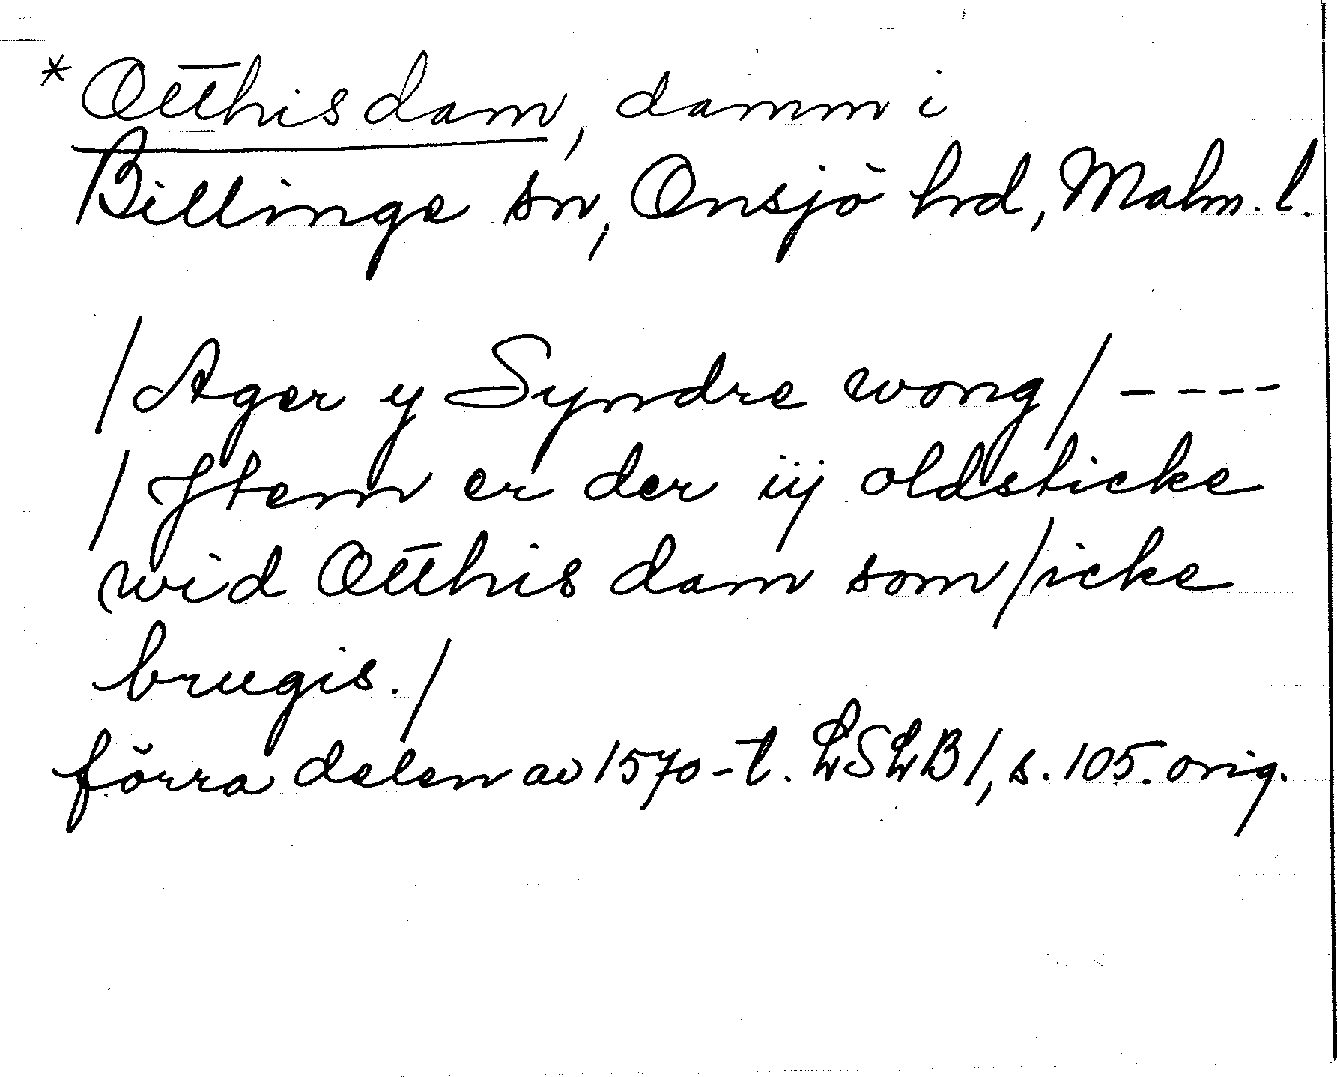 *Otthis dam, damm i
Billinge sn, Onsjö hrd, Malm. l.
/Ager y Syndre wong/ ----
/Jtem er der iij oldsticke
wid Otthis dam som/icke
brugis./
förra delen av 1570-t. LSLB 1, s. 105. orig.